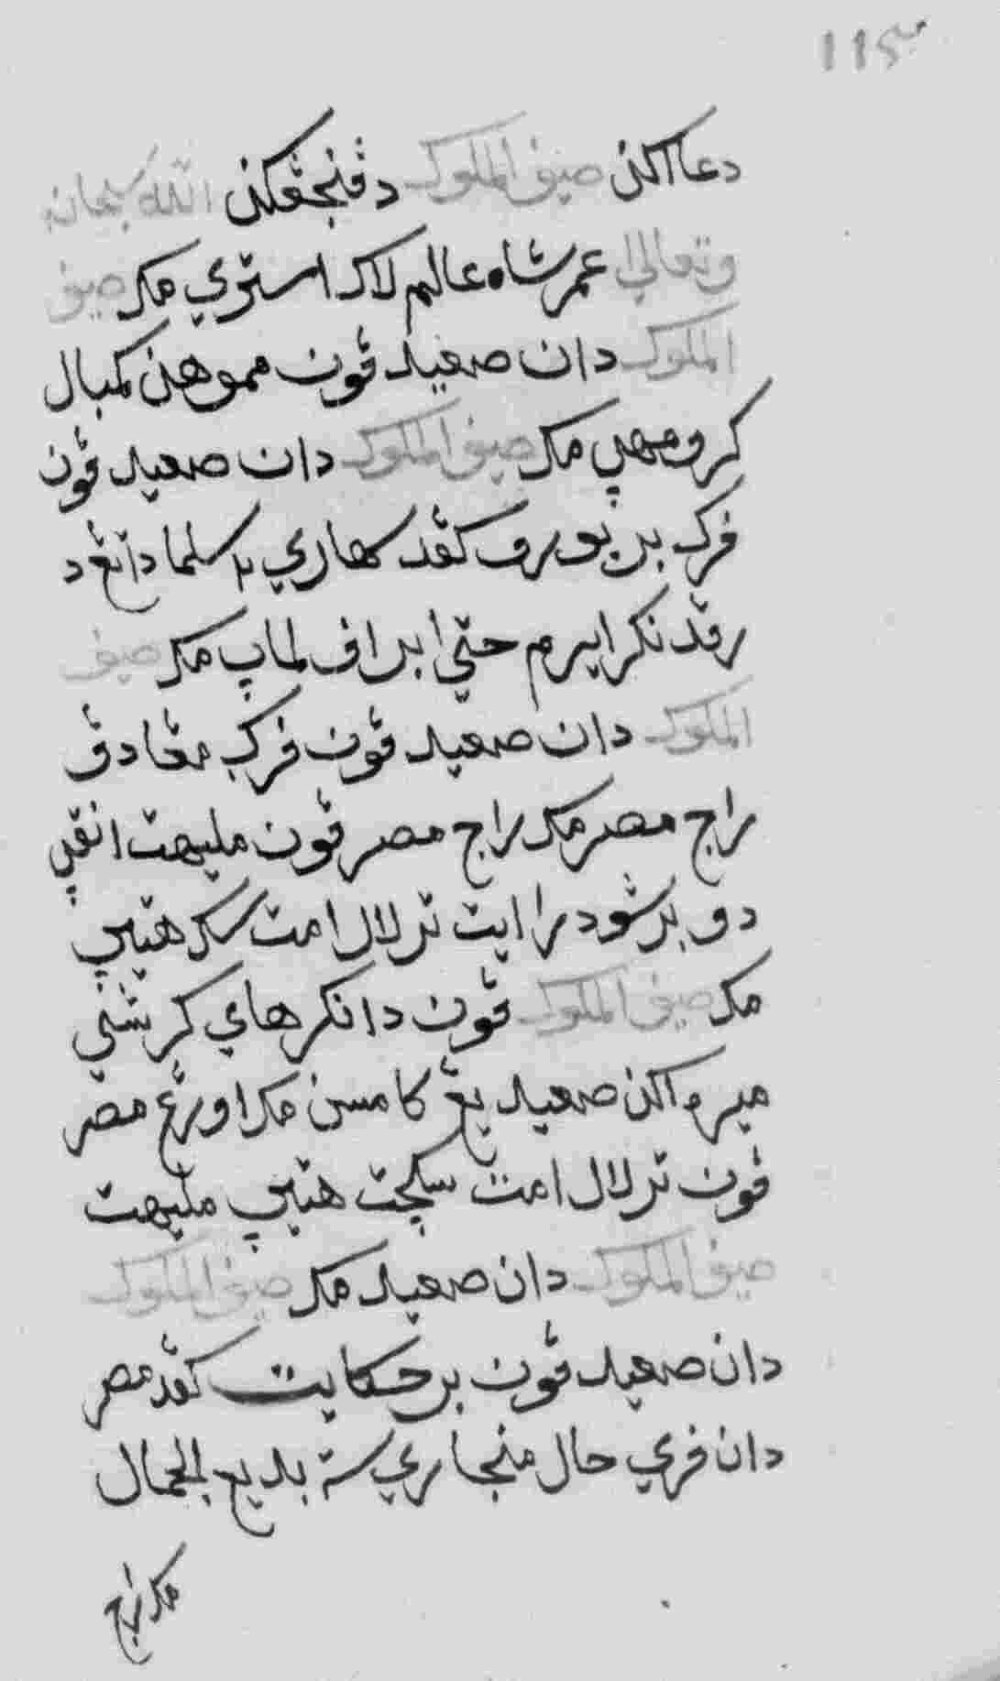 115
دعااكن صيف الملوك دڤنجڠكن الله سبحانه
وتعالى عمر شاه عالم لاك استري مك صيف
الملوك دان صعيد ڤون مموهن كمبال
كرومهڽ مك صيف الملوك دان صعيد ڤون
ڤرك بربورو كڤد سهاري ٢ سلما داتڠ د
رڤد نكر ايرم حتي ابراف لماڽ مك صيف
الملوك دان صعيد ڤون ڤرك مڠادڤ
راج مصر مك راج مصر ڤون مليهت انقڽ
دو برسودرا ايت ترلال امت سك هتيڽ
مك صيف الملوك ڤون دان كرهاي كرسني
ميرواكن صعيد يڠ كامسن مك اورڠ مصر
ڤون ترلال امت سكچت هتيڽ مليهت
صيف الملوك دان صعيد مك صيف الملوك
دان صعيد ڤون برحكايت كڤد مصر
دان ڤري حال منچاري ست بديع الجمال
مك راج